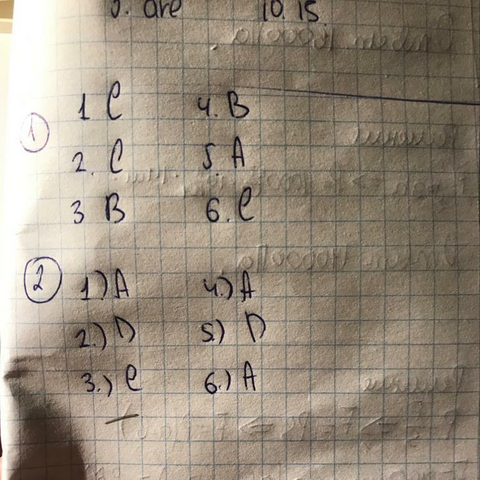 are 10. 15.
1 1 C 4. B
2. C 5. A
3 B 6. C
2 1) A 4.) A
2.) D 5) D
3.) C 6.) A